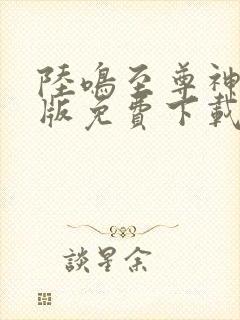 陸鳴至尊神
版免費下載
談星余